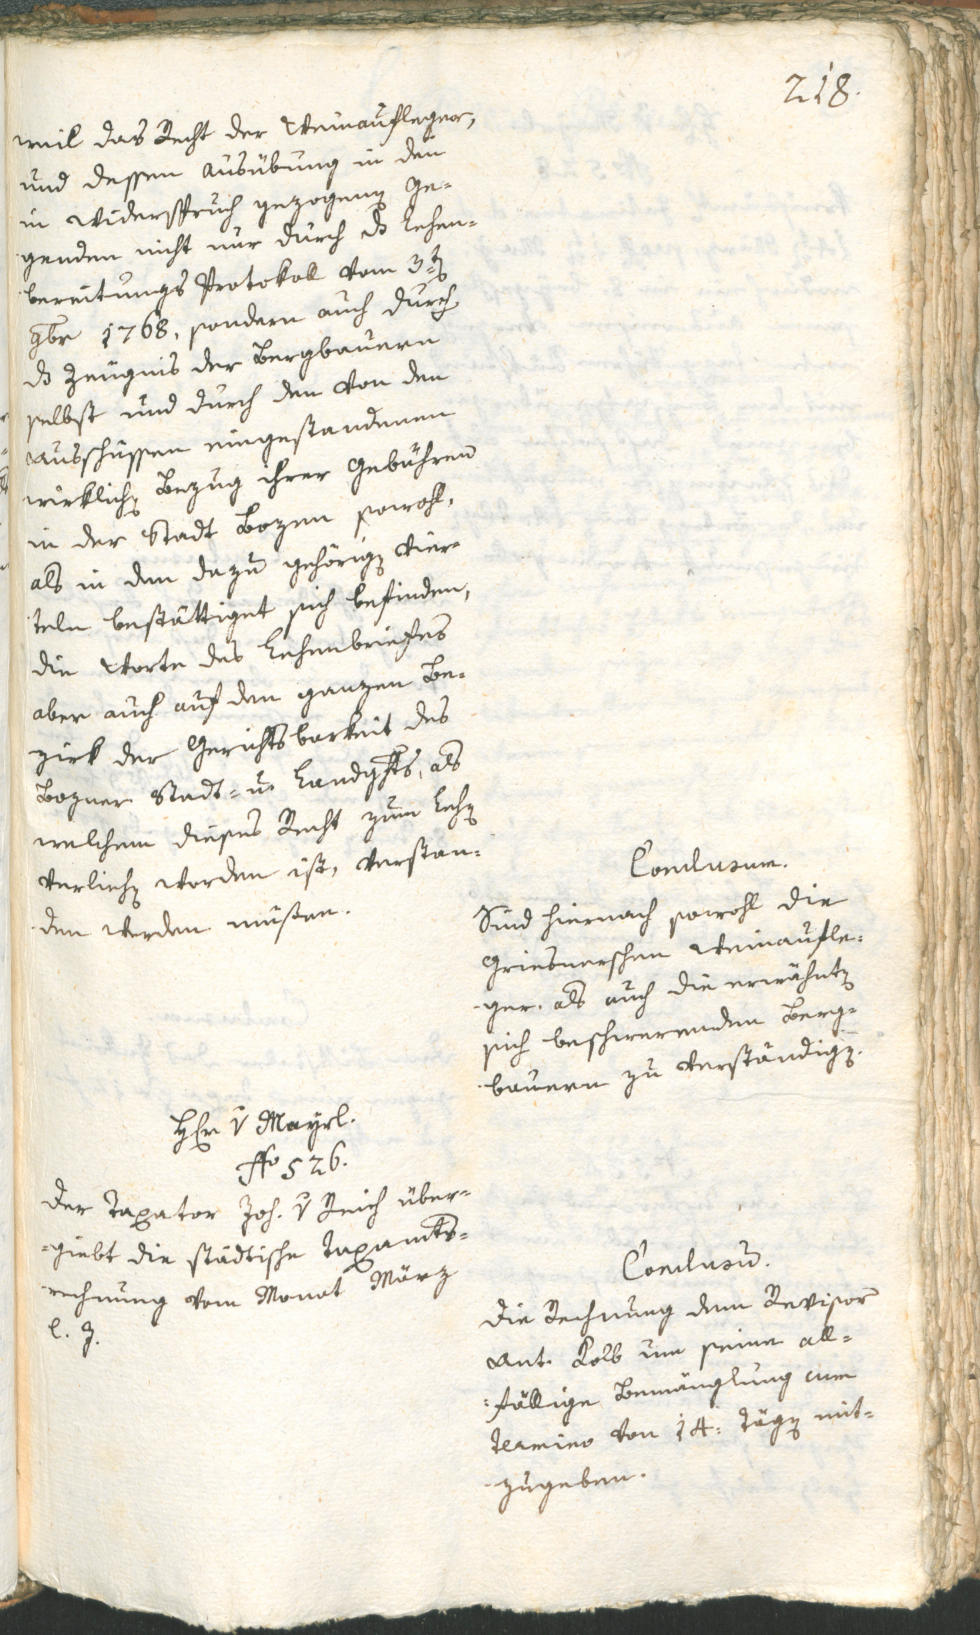 218.
weil das Recht der Weinaufleger,
und dessen Ausübung in den
in Widerspruch gezogenen Ge-
genden nicht nur durch ds Lehen-
bereitungs Protokoll vom 3ten
9br 1768, sondern auch durch
ds Zeugnis der Bergbauern
selbst und durch den von den
Ausschüssen eingestandenen
wirklichen Bezug ihrer Gebühren
in der Stadt Bozen sowohl,
als in den dazu gehörigen Vier-
teln bestättiget sich befinden,
die Worte des Lehenbriefes
aber auch auf den ganzen Be-
zirk der Gerichtsbarkeit des
Bozner Stadt- u. Landghts, als
welchem dieses Recht zum Lehen
verliehen worden ist, verstan-
den werden müßen.
Conclusum.
Sind hiernach sowohl die
Griesnerschen Weinaufle-
ger. als auch die erwähnten
sich beschwerenden Berg-
bauern zu verständigen.
Hr v Mayrl.
No 526.
Der Taxator Joh. v Reich über-
giebt die städtische Taxamts-
rechnung vom Monat März
l. J.
Conclusum.
Die Rechnung dem Revisor
Ant. Kolb um seine all-
fällige Bemänglung cum
termino von 14. Tägen mit-
zugeben.